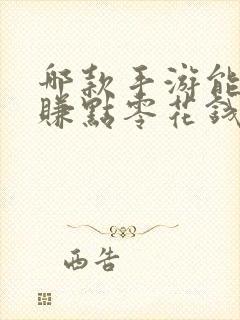 哪款手游能
賺點零花錢
西告